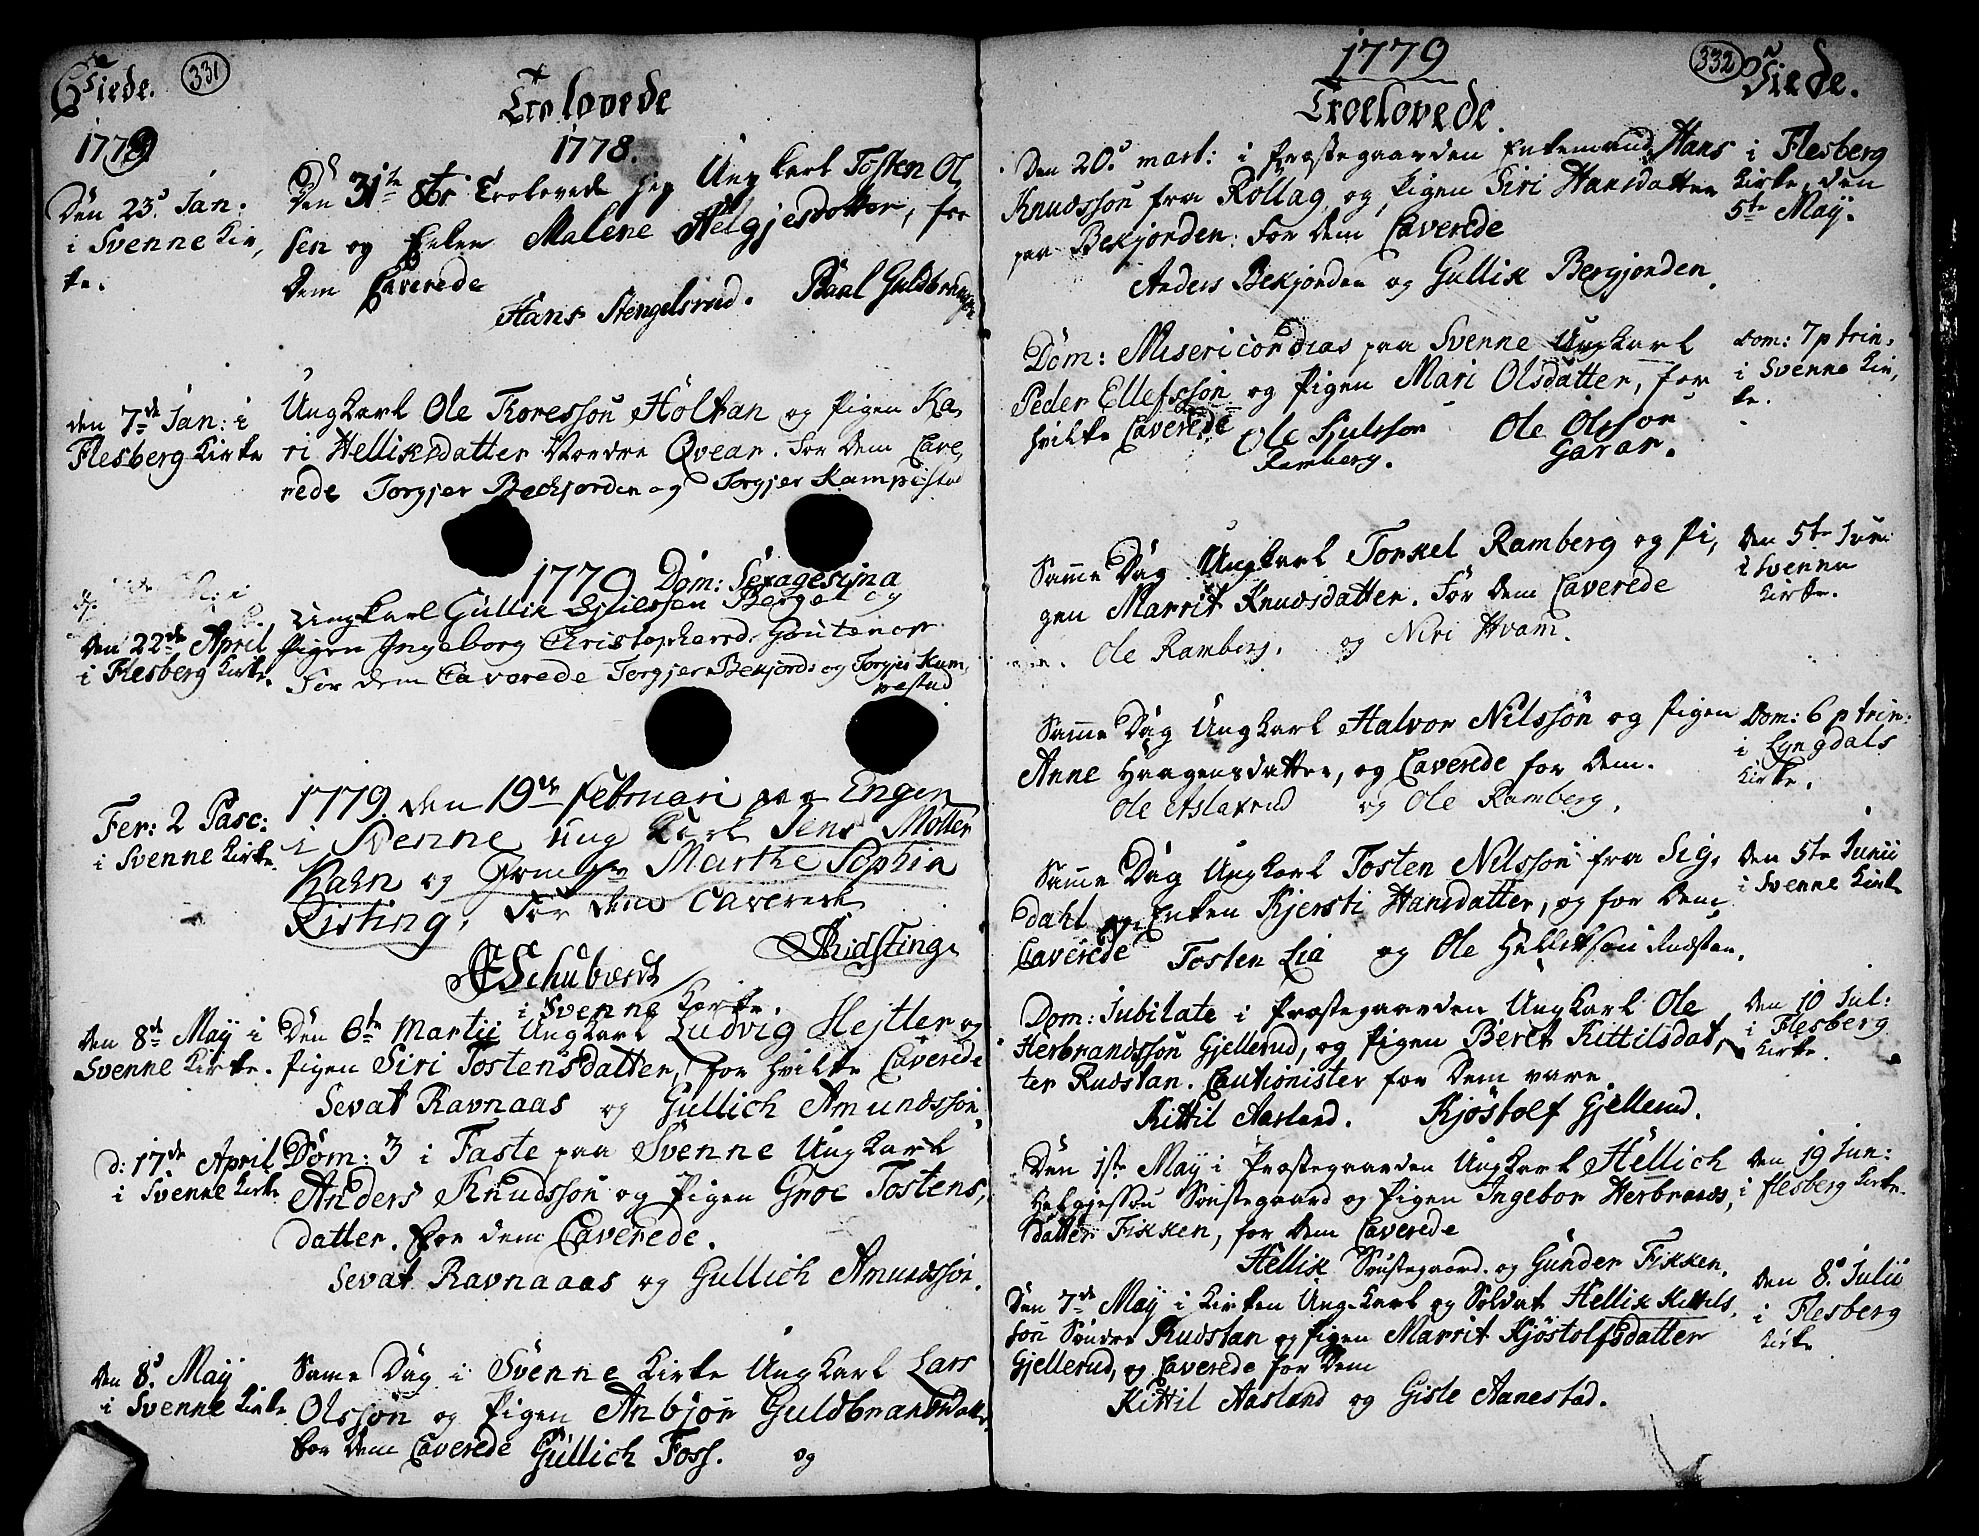 Viede.
331
Trolovede
1779
1778.
Den 23de Jan:
i Svenne Kir,
ke.
Den 31te 8br Trolovede jeg Ungkarl Tosten Ol,
sen og Enken Malene Helgjesdotter, for
dem Caverede
Hans Stengelsrud. Paal Guldbrandsen
den 7de Jan: i
Flesberg Kirke
Ungkarl Ole Toresson Holtan og Pigen Ka,
ri Helliksdatter Nordre Qvear. For dem Cave,
rede Torgjer Beckjorden og Torgjer Kampestad
1779 Dom: Sexagesima
Den 22de April
i Flesberg Kirke.
Ungkarl Gullik Berget og
Pigen Ingeborg Christophersd.
For dem Caverede Torgjer Bekjord og Torgjer Kam,
pestad
Fer: 2 Pasc:
i Svenne Kirke
1779. den 19de Februari paa Engen
i Svenne ung Karl Jens Moller
Rahn og Marthe Sophia
Risting, For dem Caverede
Schubardt
Ridsting.
i Svenne Kirke.
den 8de Maÿ i
Svenne Kirke.
Den 6te Martÿ Ungkarl Ludvig Hejtler og
Pigen Siri Tostensdatter, for hvilke Caverede
Sevat Ravnaas og Gullich Amundsson,
d: 17de April
i Svenne Kirke
Dom: 3 i Faste paa Svenne Ungkarl
Anders Knudsson og Pigen Groe Tostens,
datter. For dem Caverede.
Sevat Ravnaaas og Gullich Amundsson.
den 8de Maÿ
i Svenne Kirke
Same Dag i Svenne Kirke Ungkarl Lars
Olsson og Pigen Anbjor Guldbrandsdatter
for dem Caverede Gullich Foss. og
1779
332
Viede.
Troelovede.
Den 20de mart: i Præstegaarden Enkemand Hans
Knudsson fra Rollag og Pigen Siri Hansdatter
paa Bekjorden. For dem Caverede
Anders Bekjorden og Gullik Bergjorden.
i Flesberg
Kirke den
5te Maÿ.
Dom: Misericordias paa Svenne Ungkarl
Peder Ellefsson og Pigen Mari Olsdatter, for
hvilke Caverede Ole Sjulsson Ole Olsson
Ramberg. Garaas.
Dom: 7 p trin.
i Svenne Kir,
ke.
Samme Dag Ungkarl Torkel Ramberg og Pi,
gen Marrit Knudsdatter. For dem Caverede
Ole Ramberg. og Niri Hvam.
den 5te Juni
i Svenne
Kirke.
Samme Dag Ungkarl Halvor Nilsson og Pigen
Anne Haagensdatter, og Caverede for dem.
Ole Aslaxrud og Ole Ramberg.
Dom: 6 p trin:
i Lyngdals
Kirke.
Samme Dag Ungkarl Tosten Nilsson fra Sig,
dahl og Enken Kjersti Hansdatter, og for dem
Caverede Tosten Lia og Ole Hellikson Rudstan.
den 5te Junii
i Svenne Kirke
Dom: Jubilate i Præstegaarden Ungkarl Ole
Herbrandsson Gjellerud, og Pigen Beret Kittilsdat,
ter Rudstan. Cautionister for dem vare
Kittil Aasland. Kjøstolf Gjellerud.
den 10 Jul:
i Flesberg
Kirke.
Den 1ste Maÿ i Præstegaarden Ungkarl Hellich
Helgjesson Søustegaard og Pigen Ingebor Herbrands,
datter Fikken, for dem Caverede
Hellik Søustegaard. og Gunder Fikken.
den 19 Jun:
i Flesberg Kirke.
Den 7de Maÿ i Kirken Ungkarl og Soldat Hellik Kittils,
son Søndre Rudstan og Pigen Marrit Kjøstolfsdatter
Gjellerud, og Caverede for dem
Kittil Aasland og Gisle Aanestad.
den 8de Julii
i Flesberg
Kirke